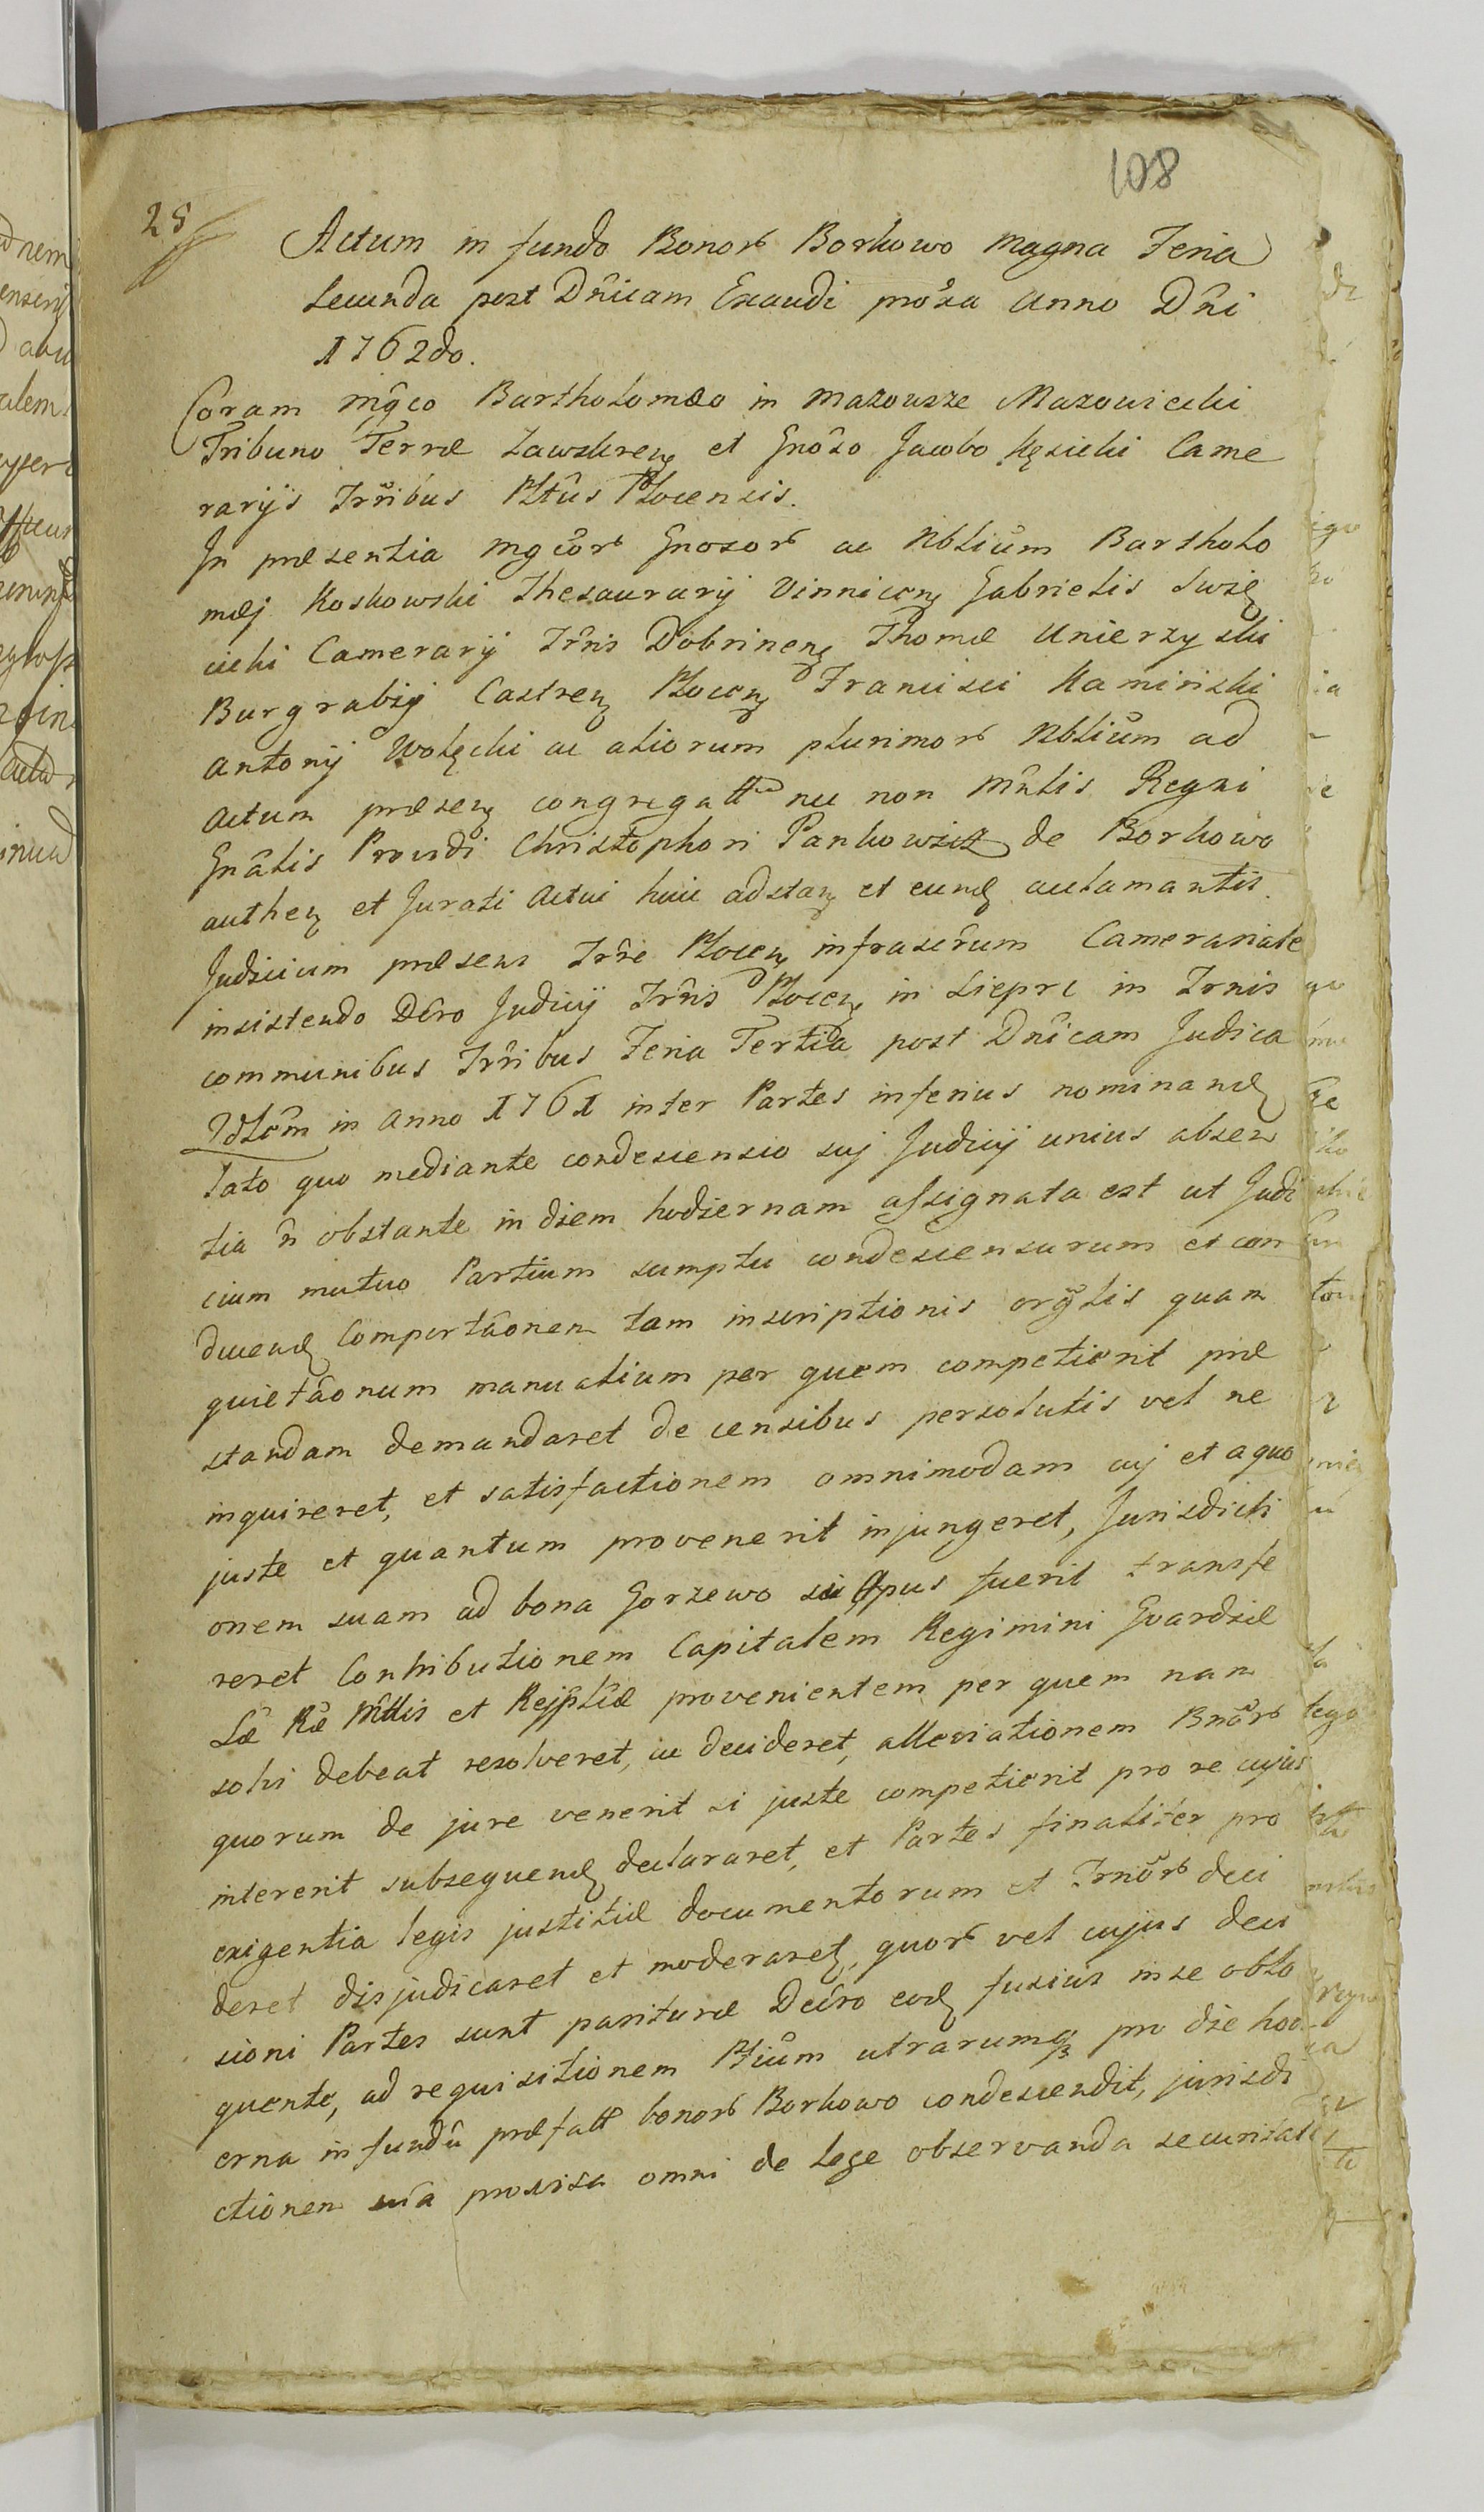 108
25
Actum in fundo Bonor Borkowo Magna Feria
secunda post Dnicam Exaudi proxa Anno Dni
1762do.
Coram Mgco Bartholomæo in Mazowsze Mazowiecki
Tribuno Terræ Zawskren et Gnoso Jacobo Kęsicki Came
rarijs Trribus Pltus Plocensis.
In præsentia Mgcor Gnosor ac Nblium Bartholo
mæj Koskowski Thesaurarij Vinnicen Gabrielis Swię
cicki Camerarij Trnis Dobrinen Thomæ Unierzyski
Burgrabij Castren Plocen Francisci Kaminski
Antonij Wolęcki ac aliorum plurimor Nblium ad
Actum præsen congregatt nec non Mnlis Regni
Gnalis Providi Christophori Pankowicz de Borkowo
authen et Jurati Actui huic adstan et eund aclamantis.
Judicium præsens Trre Plocen infrascrum Camerariale
insistendo Dcro Judicij Trnis Plocen in Siepre in Trnis
communibus Trribus Feria Tertia post Dnicam Judica
Qdlem in Anno 1761 inter Partes inferius nominand
lato quo mediante condescensio sui Judicij unius absen
tia n obstante in diem hodiernam assignata est ut Judi
cium mutuo Partium sumptu condescensurum et con
ducend Comportaonem tam inscriptionis orglis quam
quietaonum manualium per quem competierit præ
standam demandaret de censibus persolutis vel ne
inquireret, et satisfactionem omnimodam cuj et a quo
juste et quantum provenerit injungeret, Jurisdicti
onem suam ad bona Gorzewo si opus fuerit transfe
reret Contributionem Capitalem Regimini Gvardiæ
Læ Ræ Mttis et Rejplicæ provenientem per quem nam
solvi debeat resolveret, ac decideret, alleviationem Bnor
quorum de jure venerit si juste competierit pro re cujus
intererit subsequend declararet, et Partes finaliter pro
exigentia legis justitiæ documentorum et Trnor deci
deret disjudicaret et moderaret, quor vel cujus deci
sioni Partes sunt pariturae Dcro eod fusius in se oblo
quente, ad requisitionem Ptium utrarumq pro die hodi
erna in fundu præfatt bonor Borkowo condescendit, jurisdi
ctionem sua provisa omni de Lege observanda securitate